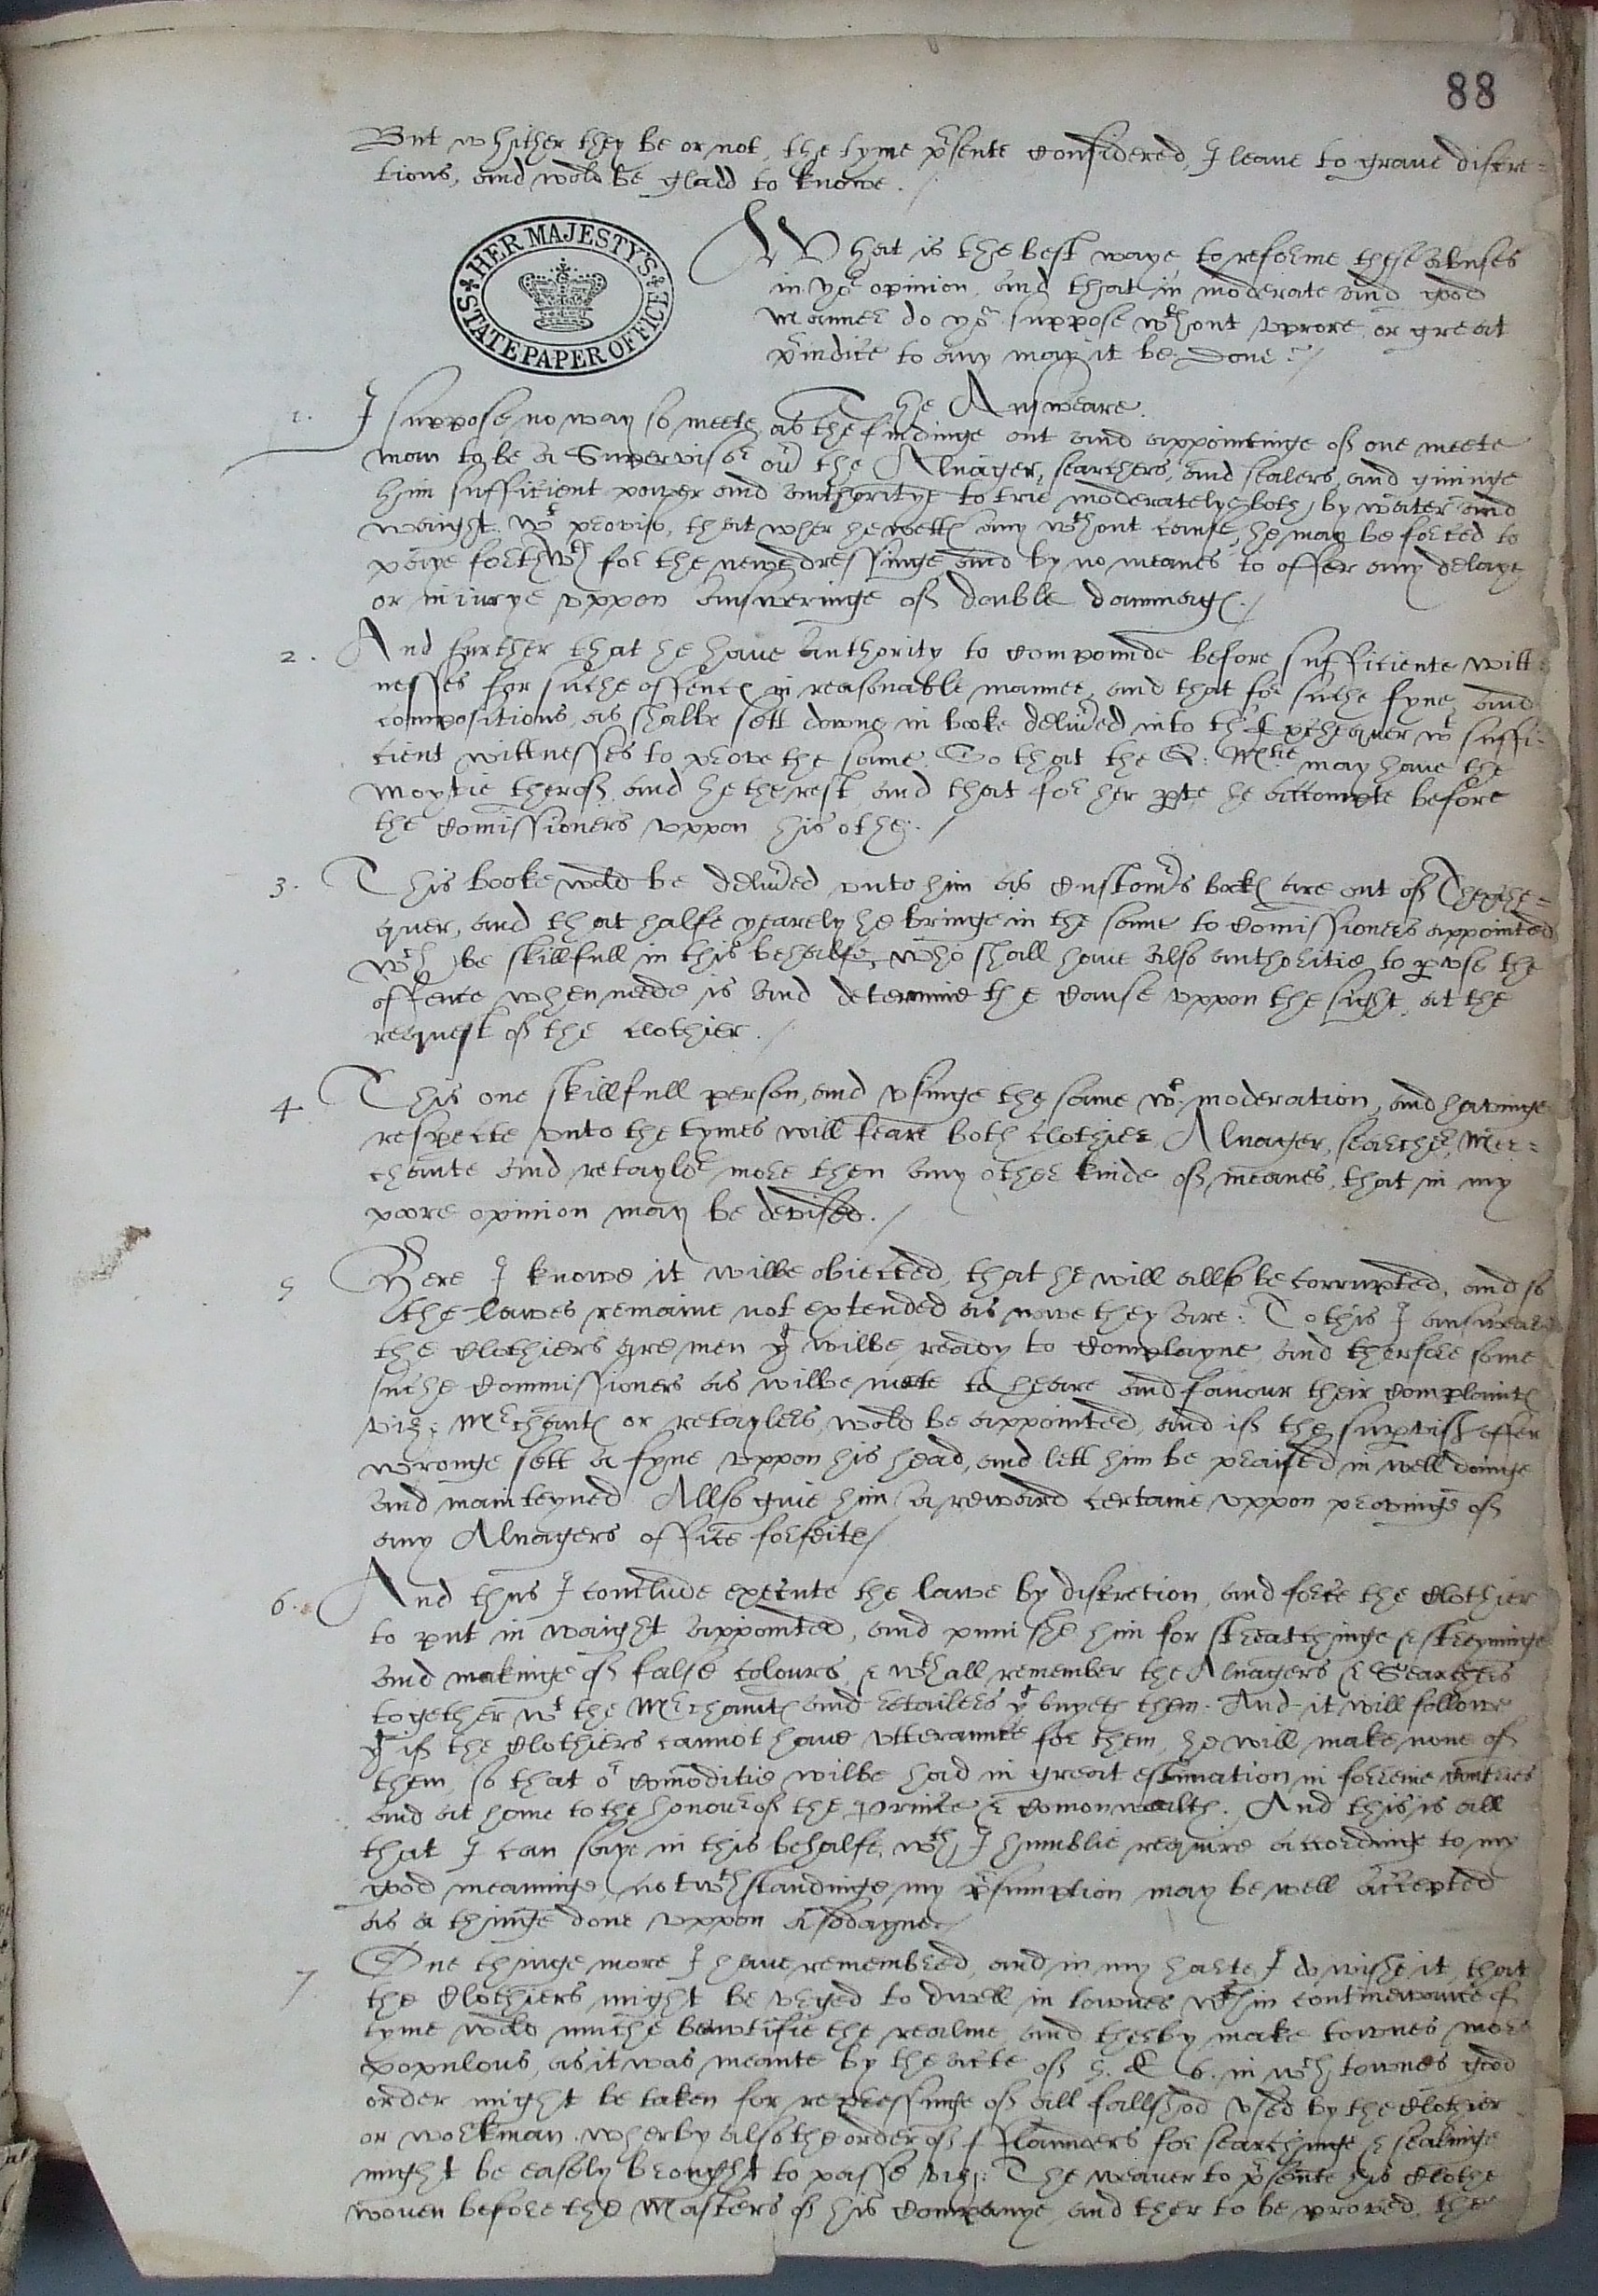 88
But whither they be or not, the tyme p͂sente considered, I leaue to graue discre=
tions, and wold be gladd to knowe.
HER MAJESTY'S STATE PAPER OFFICE
What is the best waye to reforme these abuses
in yor opinion, and that in moderate and good
manner do yo͂ suppose wthout vprore, or great
p͂iudice to any may it be done?
The Answeare.
1. I suppose no way so meete as the findinge out and appointinge of one meete
man to be a Supervisor ou͂ the Alnager, searchers, and sealers, and giuinge
him sufficient power and authoritye to trie moderatelye both by water and
waight, wt proviso, that wher he wetts any wthout cause, he may be forced to
paye forthwth for the newe dressinge and by no meanes to offer any delaye
or iniurye vppon answeringe of double dammages.
2. And further that he haue authority to compounde before sufficiente witt=
nesses for suche offences in reasonable manner, and that for suche fyne and
compositions, as shalbe sett downe in booke deliu͂ed into thexchequer wt suffi=
cient wittnesses to prove the same. So that the Q. Matie may haue the
moytie therof, and he the rest, and that for her p͂te he accompte before
the Comissioners vppon his othe.
3. This booke wold be deliu͂ed vnto him as Customrs bookes are out of Thexche=
quer, and that halfe yearely he bringe in the same to Comissioners appointed
wch be skillfull in this behalfe, who shall haue also authoritie to p͂vse the
offence when neede is and determine the cause vppon the sight, at the
request of the clothier.
4. This one skillfull person, and vsinge the same wt moderation, and havinge
respecte vnto the tymes will feare both Clothier, Alnager, searcher, Mer=
chante and retaylor more then any other kinde of meanes, that in my
poore opinion may be devised.
5 Here I knowe it wilbe obiected, that he will allso be corrupted, and so
the lawes remaine not extended as nowe they are: To this I answeare
the Clothiers are men yt wilbe ready to complayne, and therfore some
suche Commissioners as wilbe meete to heare and fauour their complaints
viz: Mrchants or retaylers, wold be appointed, and if the sup͂visor offer
wronge sett a fyne vppon his head, and lett him be praised in well doinge
and mainteyned. Allso giue him a reward certaine vppon provinge of
any Alnagers office forfeite
6. And thus I conclude execute the lawe by discretion, and force the Clothier
to put in waight appointed, and punishe him for streatchinge & streyninge
and makinge of false colours, & wthall remember the Alnagers & Searchers
together wt the Mrchants and retailers yt buyeth them. And it will followe
yt if the Clothiers cannot haue vtteraunce for them, he will make none of
them, so that or Com͂oditie wilbe had in great estimation in forreine Contries
and at home to the honour of the prince & Comonwealth. And this is all
that I can saye in this behalfe, wch I humblie require accordinge to my
good meaninge, notwthstandinge my p͂sumption may be well accepted
as a thinge done vppon a sodayne
7 One thinge more I haue remembred, and in my harte I do wishe it, that
the Clothiers might be vrged to dwell in townes wch in continewance of
tyme wold muche bewtifie the realme, and therby make townes more
populous, as it was meante by the acte of 5. & 6. in wch townes good
order might be taken for repressinge of all fallshod vsed by the Clothier
or workman, wherby also the order of Flaunders for searchinge & sealinge
might be easely brought to passe viz: The weauer to p͂sente his Clothe
wouen before the Masters of his Companye, and ther to be proved, the